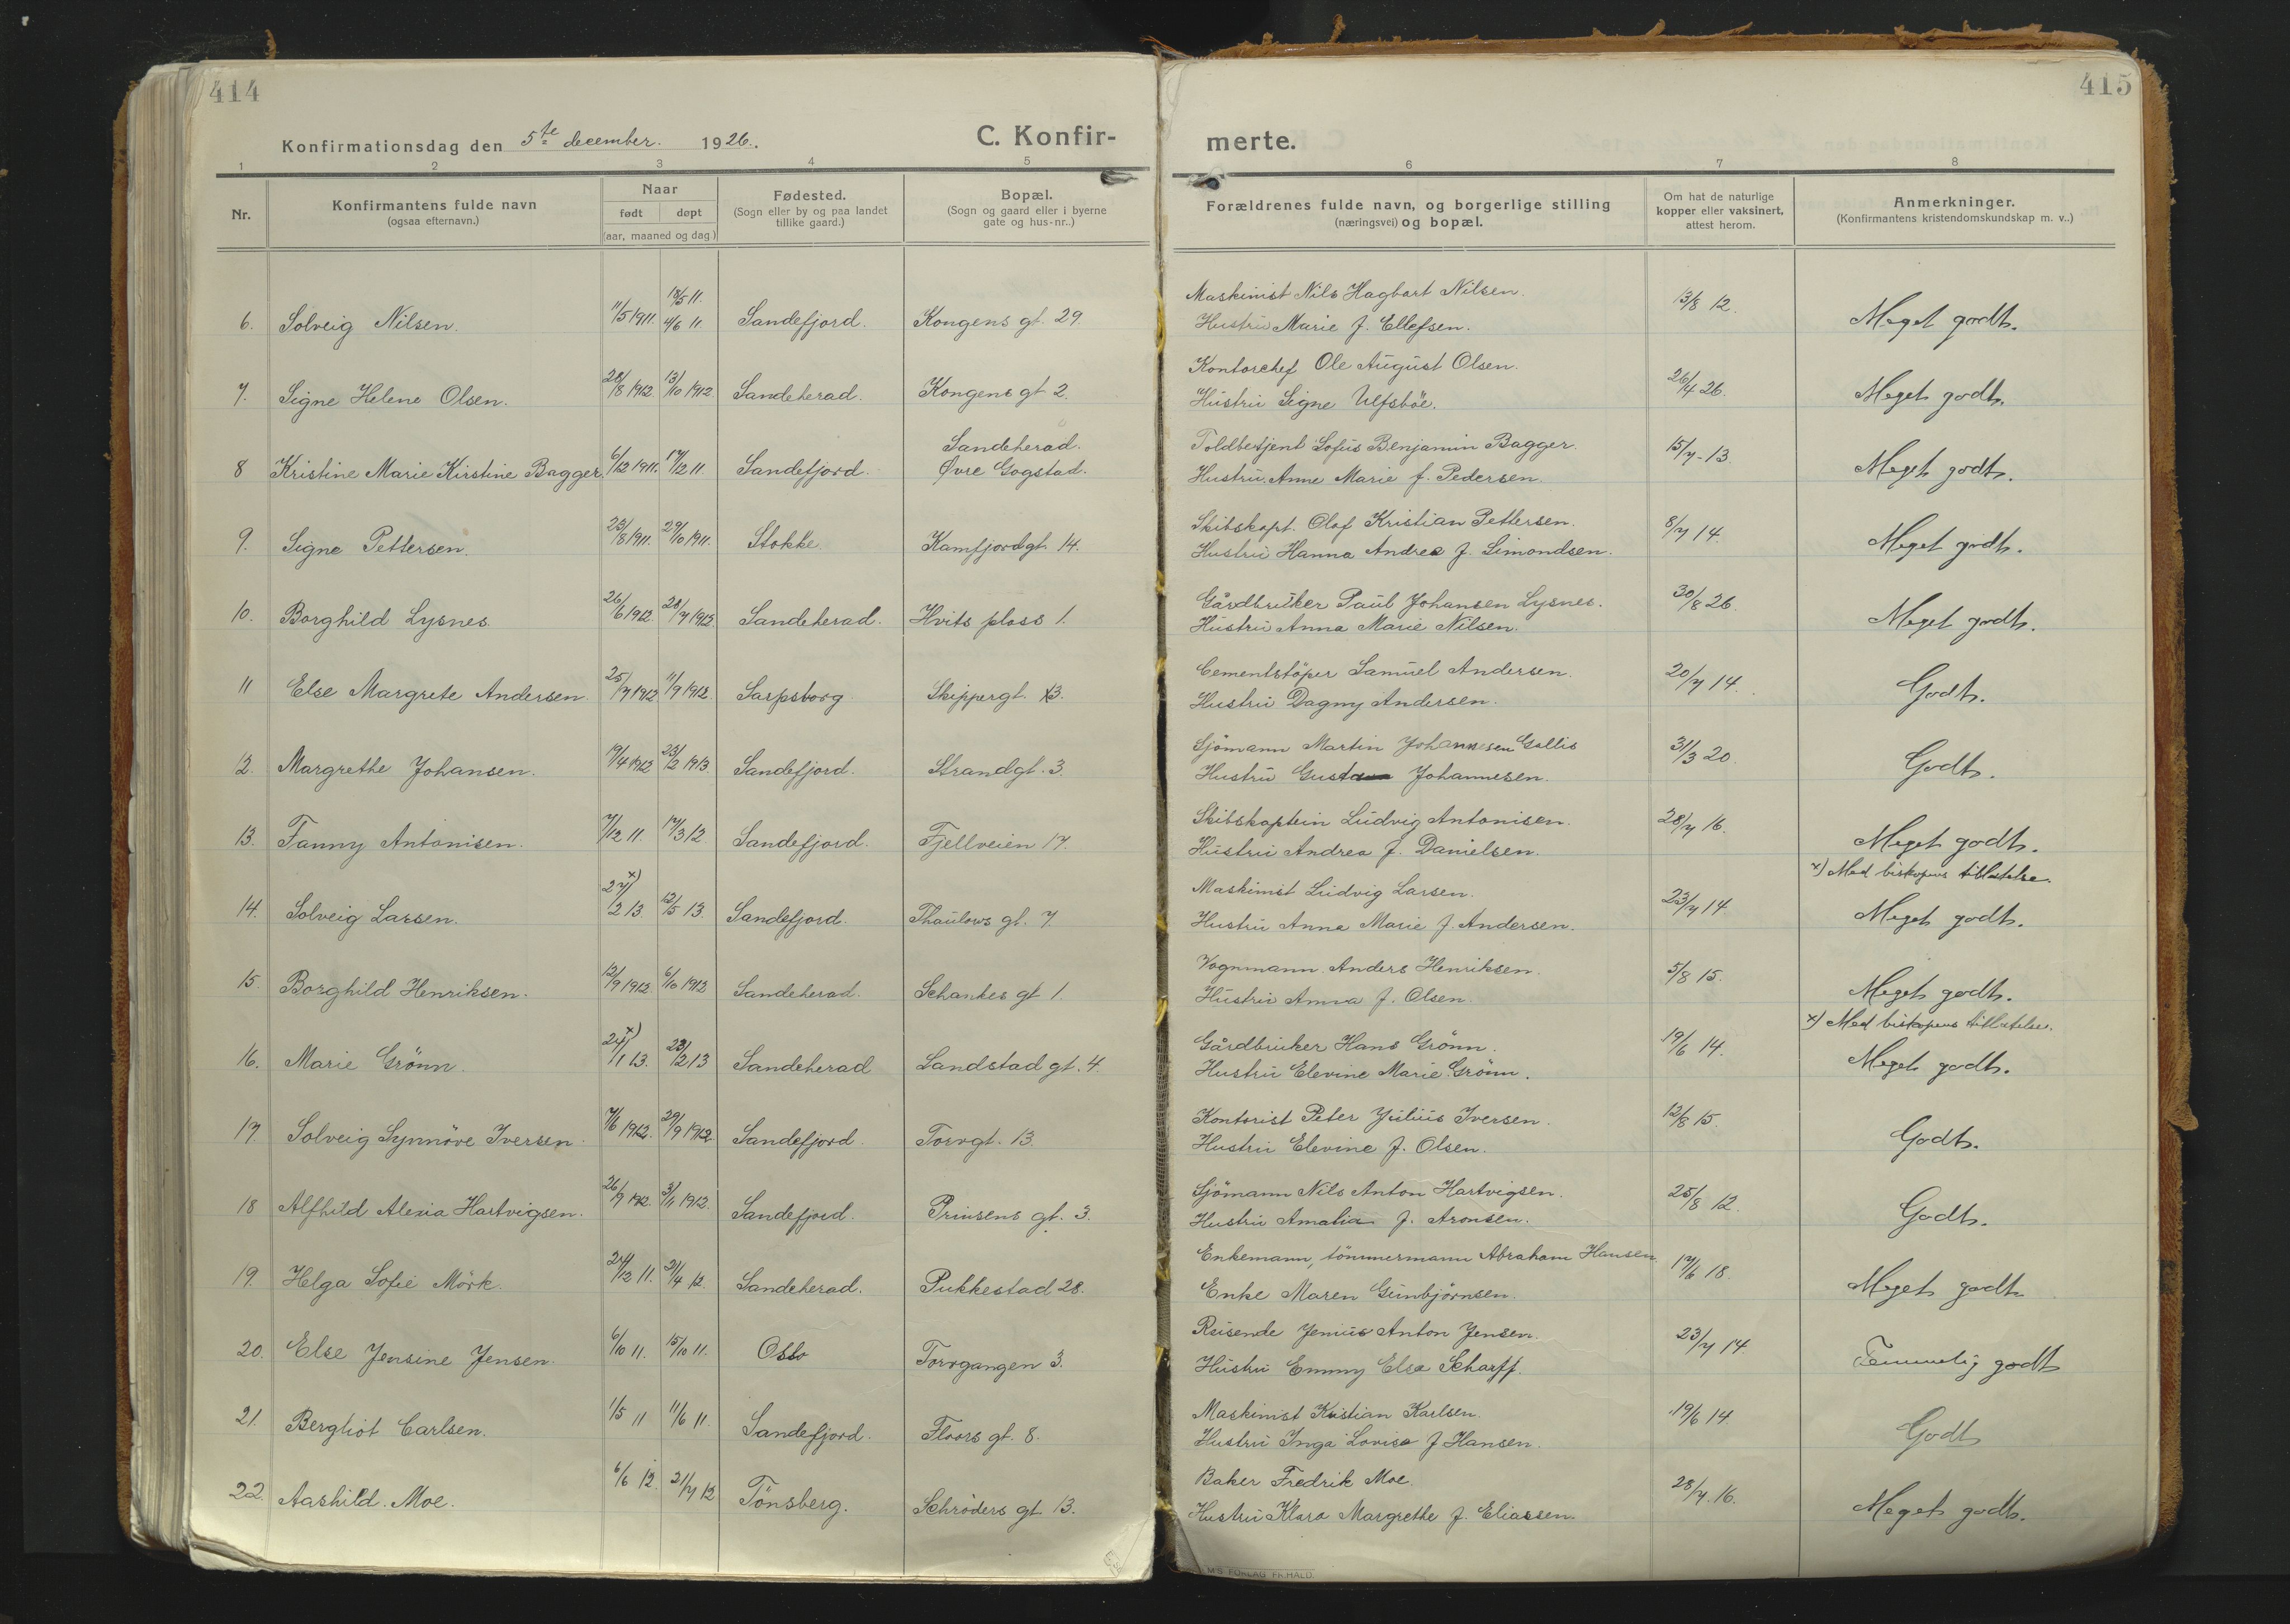 414
415
Konfirmationsdag den 5te december. 1926.
C. Konfir-
merte.
1 2 3 4 5 6 7 8
Nr.
Konfirmantens fulde navn
(ogsaa efternavn.)
Naar
født døpt
(aar, maaned og dag.)
Fødested.
(Sogn eller by og paa landet
tillike gaard.)
Bopæl.
(Sogn og gaard eller i byerne
gate og hus-nr..)
Forældrenes fulde navn, og borgerlige stilling
(næringsvei) og bopæl.
Om hat de naturlige
kopper eller vaksinert,
attest herom.
Anmerkninger.
(Konfirmantens kristendomskundskap m. v..)
18/5 11. Maskinist Nils Hagbart Nilsen.
6. Solveig Nilsen. 11/5 1911. 4/6 11 Sandefjord. Kongens gt. 29. Hustru Marie f. Ellefsen. 13/8 12. Meget godt.
Kontorchef Ole August Olsen.
7. Signe Helene Olsen. 28/8 1912. 13/10 1912. Sandeherad. Kongens gt 2. Hustru Signe Ulfsböe. 26/4 26. Meget godt.
Sandeherad. Toldbetjent Sofus Benjamin Bagger.
8 Kristine Marie Kirstine Bagger. 6/12 1911. 17/12 11. Sandefjord. Øvre Gogstad. Hustru Anne Marie f. Pedersen. 15/7-13. Meget godt.
Skibskapt. Olaf Kristian Pettersen.
9. Signe Pettersen. 23/8 1911. 29/10 1911. Stokke. Kamfjordgt. 14. Hustru Hanna Andrea f. Simondsen. 8/7 14. Meget godt.
Gårdbruker Paul Johansen Lysnes.
10. Borghild Lysnes. 26/6 1912. 28/7 1912 Sandeherad. Hvits plass 1. Hustru Anna Marie Nilsen. 30/8 26. Meget godt.
Cementstöper Samuel Andersen.
11 Else Margrete Andersen 25/7 1912 11/9 1912. Sarpsborg Skippergt. 3. Hustru Dagny Andersen. 20/7 14. Godt.
Sjömann Martin Johannsen Gallis
12. Margrethe Johansen. 19/4 1912 23/2 1913. Sandefjord. Strandgt. 3. Hustru Gustava Johannesen. 31/3 20. Godt.
Skibskaptein Ludvig Antonisen.
13. Fanny Antonisen. 7/12 11. 17/3 12. Sandefjord. Fjellveien 17. Hustru Andrea f. Danielsen. 28/7 16. Meget godt.
Maskinist Ludvig Larsen. x) Med biskopens tillatelse.
14. Solveig Larsen. 27/2 13. x) 12/5 13. Sandefjord. Thaulows gt. 7. Hustru Anna Marie f. Andersen. 23/7 14 Meget godt.
Vognmann Anders Henriksen.
15. Borghild Henriksen. 12/9 1912. 6/10 1912 Sandeherad. Schankes gt 1. Hustru Anna f. Olsen. 5/8 15. Meget godt.
Gårdbruker Hans Grönn. x) Med biskopens tillatelse.
16. Marie Grönn. 24/1 13. x) 23/2 13 Sandeherad Landstad gt. 4. Hustru Elevine Marie Grönn. 19/6 14. Meget godt.
Kontorist Peter Julius Iversen.
17. Solveig Synnöve Iversen. 7/6 1912. 29/9 1912. Sandefjord. Torvgt. 13. Hustru Elevine f. Olsen. 12/8 15. Godt.
Sjömann Nils Anton Hartvigsen.
18 Alfhild Alexia Hartvigsen. 26/9 1912. 3/11 1912. Sandefjord. Prinsens gt. 3. Hustru Amalia f. Aronsen. 25/8 12. Godt.
Enkemann, tömmermann Abraham Hansen
19. Helga Sofie Mörk. 24/12 11. 21/4 12. Sandeherad. Pukkestad 28. Enke Maren Gunbjörnsen. 17/6 18. Meget godt
Reisende Jenius Anton Jensen.
20. Else Jensine Jensen. 6/10 11. 15/10 11. Oslo Torvgangen 3. Hustru Emmy Elsa Scharff. 23/7 14 Temmelig godt
Maskinist Kristian Karlsen.
21. Bergliot Carlsen. 1/5 11 11/6 11. Sandefjord. Floors gt. 8. Hustru Inga Lovise f Hansen. 19/6 14 Godt
Baker Fredrik Moe.
22. Aashild Moe. 6/6 12. 21/7 12 Tönsberg. Schröders gt 13. Hustru Klara Margrethe f. Eliassen. 28/7. 16. Meget godt.
FORLAG FR. HALD.